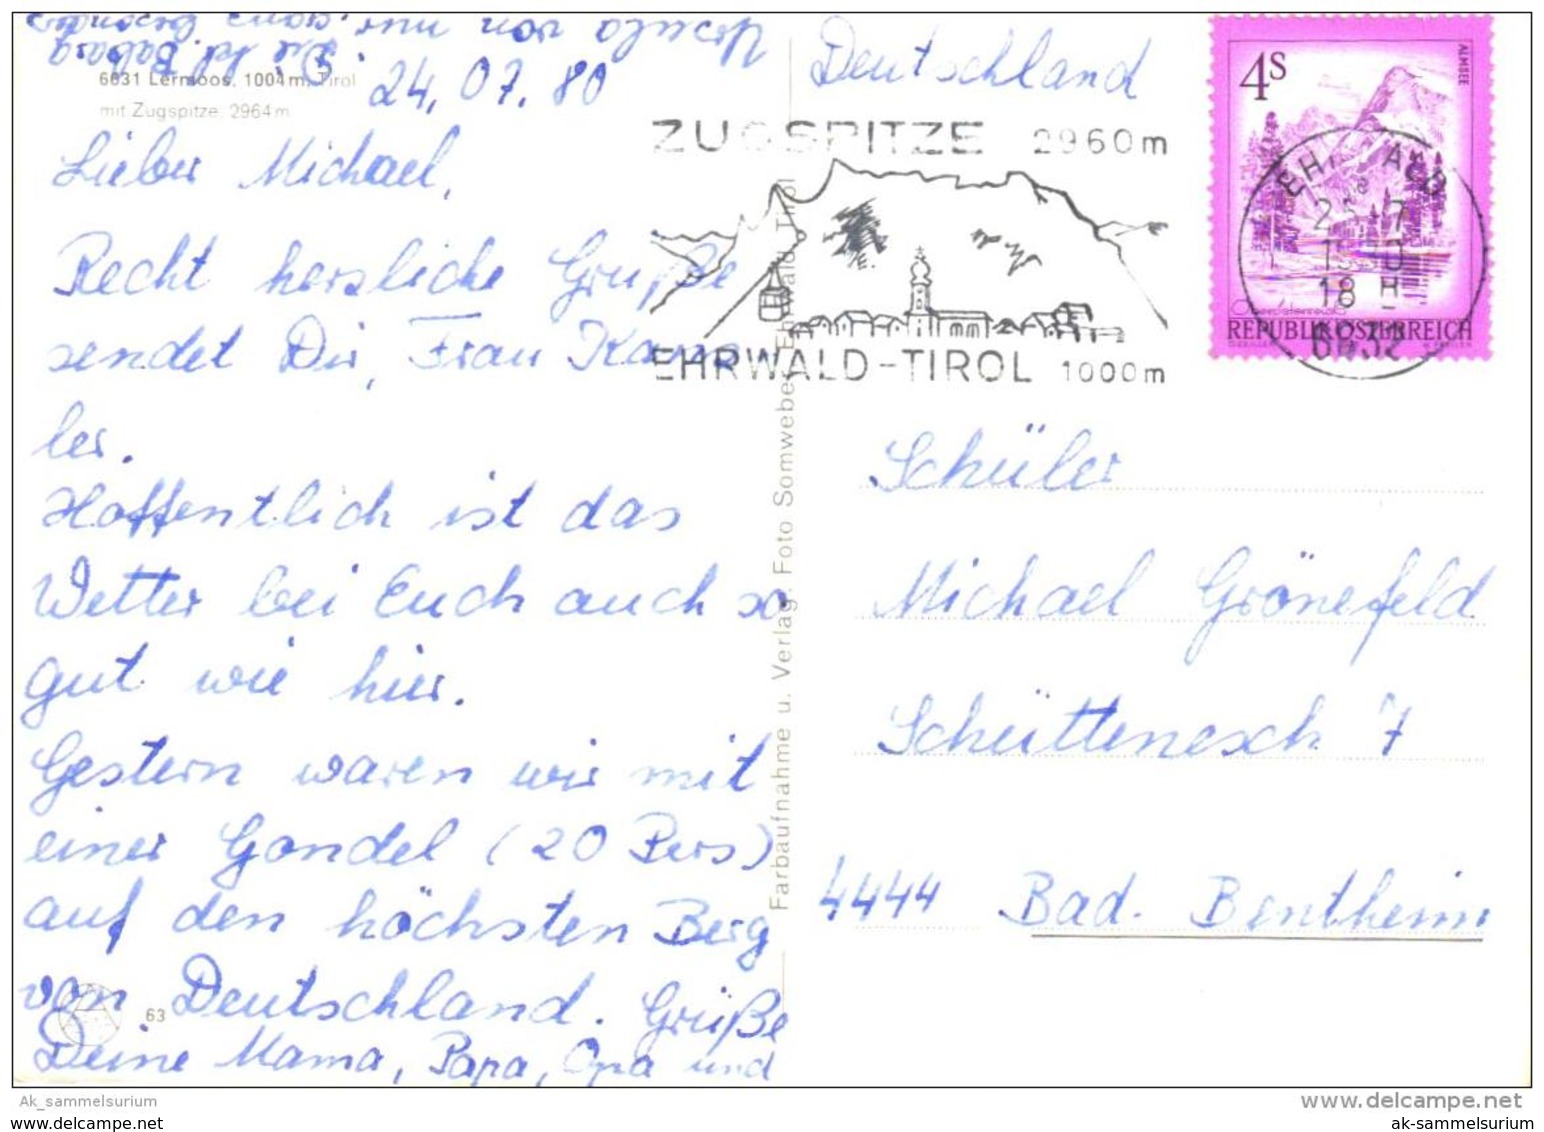 6631 Lermoos, 1004 m, Tirol
mit Zugspitze, 2964 m
24. 07. 80
Lieber Michael,
Recht herzliche Grüße
sendet Dir, Frau Kamp
ler.
Hoffentlich ist das
Wetter bei Euch auch so
gut wie hier.
Gestern waren wir mit
einer Gondel (20 Pers)
auf den höchsten Berg
von Deutschland. Grüße
Deine Mama, Papa, Opa und
Ursula von nur, ganz besonders
63
Farbaufnahme u. Verlag: Foto Somweber, Ehrwald, Tirol
Deutschland
ZUGSPITZE 2960m
EHRWALD-TIROL 1000m
4S
ALMSEE
REPUBLIK ÖSTERREICH
18 H
6632
Schüler
Michael Grönefeld
Schüttenesch 7
4444 Bad. Bentheim
Ak_sammelsurium
www.delcampe.net
www.delcampe.net
ak-sammelsurium